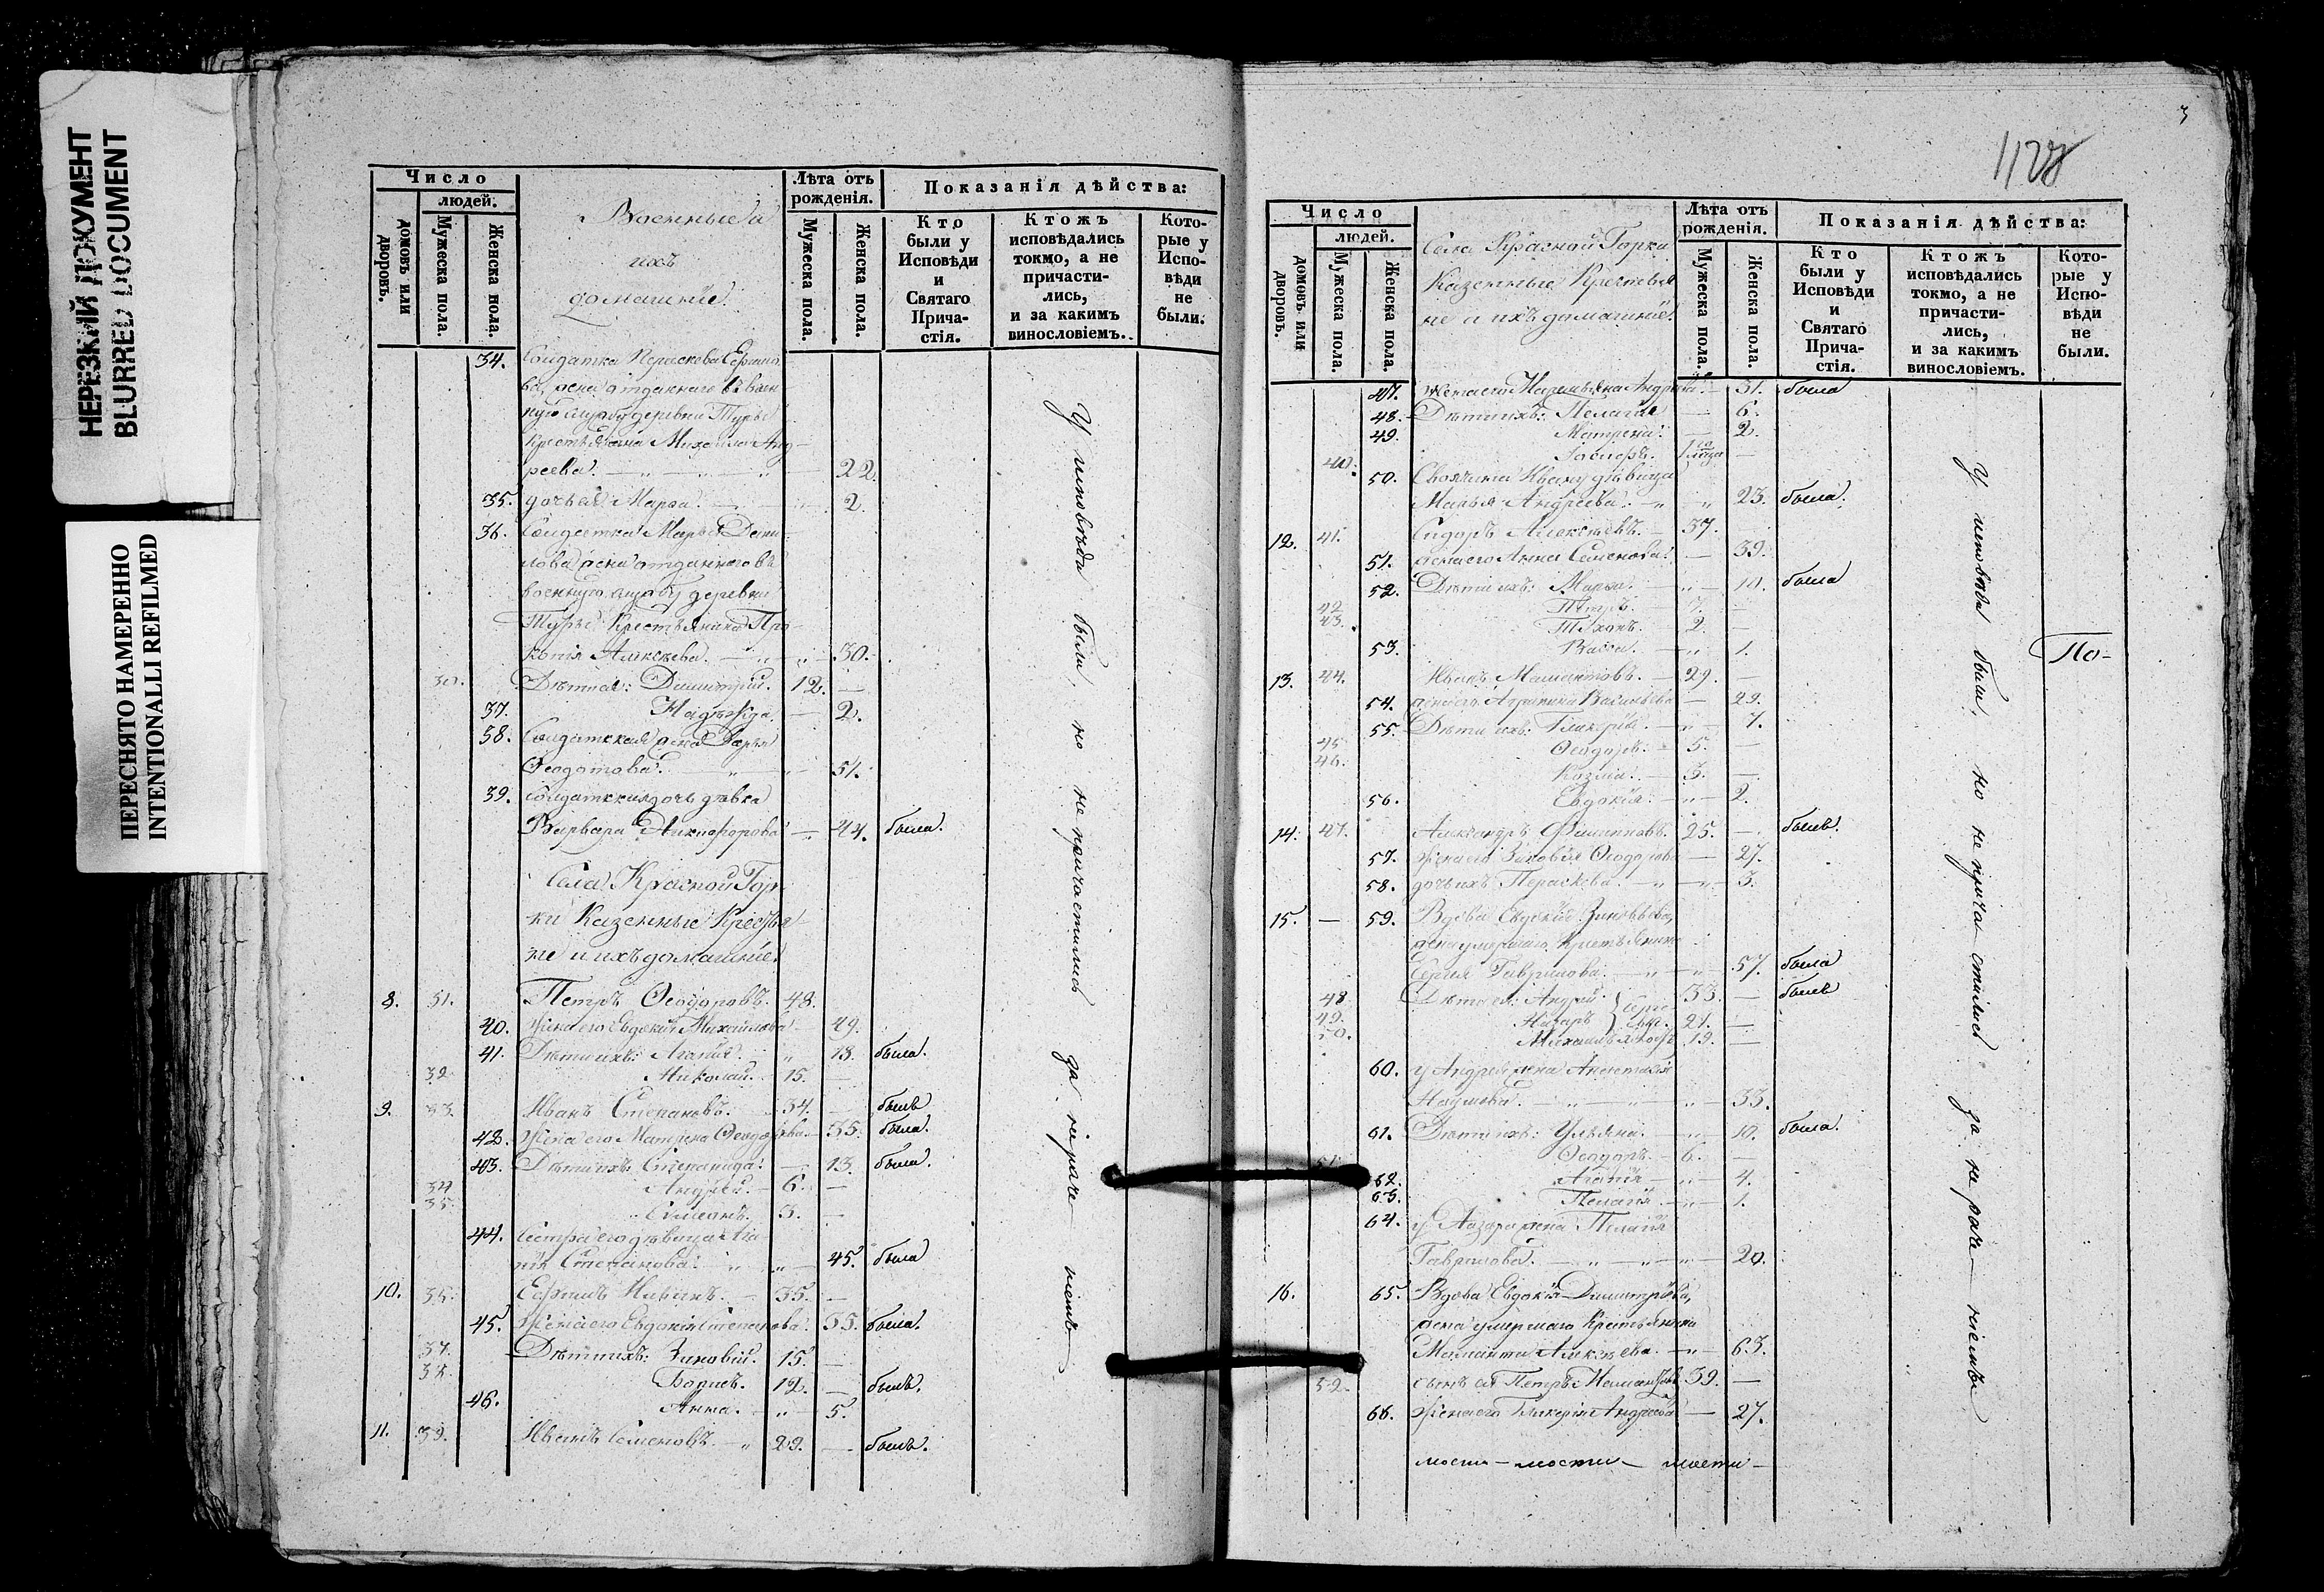 НЕРЕЗКИЙ ДОКУМЕНТ
BLURRED DOCUMENT
ПЕРЕСНЯТО НАМЕРЕННО
INTENTIONALLI REFILMED
Число
людей.
домовъ или дворовъ.
Мужеска пола.
Женска пола.
Военные и
ихъ
домашніе.
Лѣта отъ рожденія.
Мужеска пола.
Женска пола.
Показанія дѣйства:
Кто были у Исповѣди и Святаго Прича- стія.
Ктожъ исповѣдались токмо, а не причасти- лись, и за какимъ винословіемъ.
Кото- рые у Испо- вѣди не были.
34. Солдатка Параскева
жена отданнаго въ воен-
ную службу деревни Турья
Крестьянина Михаила Анд-
реева. 22.
35. дочь ея Марѳа. 2.
36. Солдатка Марья Дани-
лова жена отданнаго въ
военную службу деревни
Турьи Крестьянина Про-
копія Алексѣева. 30.
30. Дѣти ея: Димитрій. 12.
37. Надежда. 2.
38. Солдатская жена Дарья
Ѳеодотова. 51.
39. Солдатская дочь дѣвка
Варвара Никифорова 44. была.
Села Красной Гор-
ки Казенные Крестья-
не и ихъ домашніе.
8. 31. Петръ Ѳеодоровъ. 48.
40. Жена его Евдокія Михайлова 49.
41. Дѣти ихъ: Агапія. 18. была.
32. Николай. 15.
9. 33. Иванъ Степановъ. 34. былъ
42. Жена его Матрена Ѳеодорова. 35. была.
43. Дѣти ихъ: Степанида. 13. была.
34. Андрей. 6.
35. Симеонъ. 3.
44. Сестра его дѣвица Ага-
пія Степанова. 45. была
10. 36. Ефимъ 35.
45. Жена его Евдокія Степанова. 35. была.
37. Дѣти ихъ: Зиновій. 15.
38. Борисъ. 12. былъ.
46. Анна. 5.
11. 39. Иванъ Семеновъ. 29. былъ.
У исповѣди были, но не причастились за нераче- ніемъ
3
1128
Число
людей.
домовъ или дворовъ.
Мужеска пола.
Женска пола.
Села Красной Горки
Казенные Крестья-
не и ихъ домашніе.
Лѣта отъ рожденія.
Мужеска пола.
Женска пола.
Показанія дѣйства:
Кто были у Исповѣди и Святаго Прича- стія.
Ктожъ исповѣдались токмо, а не причасти- лись, и за какимъ винословіемъ.
Кото- рые у Испо- вѣди не были.
47. Жена его Андреева. 31. была
48. Дѣти ихъ: Пелагія 6.
49. Матрена. 2.
40.
50. Своячина Ивану дѣвица
Марья Андреева. 23. была.
12. 41. Сидоръ Алексѣевъ. 37.
51. жена его Анна Семенова. 39.
52. Дѣти ихъ: Марѳа. 10. была
42. Петръ.
43. Тихонъ. 2.
53. Васса. 1.
13. 44. Иванъ Мамантовъ. 29.
54. жена его Агрипина Васильева 29.
55. Дѣти ихъ: Гликерія. 7.
45. Ѳеодоръ. 5.
46. Козма. 3.
56. Евдокія. 2.
14. 47. Александръ Филипповъ. 25. былъ.
57. Жена его Зиновія Ѳеодорова 27.
58. дочь ихъ Параскева. 3.
15. — 59. Вдова Евдокія Зиновьева,
жена умершаго Крестьянина
Сергія Гаврилова. 57. была
48. Дѣти ея: Андрей 33. былъ
49. Назаръ } Сергѣ- евы. 21.
50. Михаилъ 19.
60. у Андрея жена Анастасія
Наумова. 33.
61. Дѣти ихъ: Ульяна. 10. была.
51. Ѳеодоръ. 6.
62. Агапія 4.
63. Пелагія 1.
64. у Назара жена Пелагія
Гаврилова. 20.
16. 65. Вдова Евдокія Димитріева,
жена умершаго Крестьянина
Маманта Алексѣева. 63.
52. сынъ ея Петръ Мамантовъ 39.
66. Жена его Гликерія Андреева 27.
мости — мости — мости —
У исповѣди были, но не прича- стились за нераче- ніемъ
По-